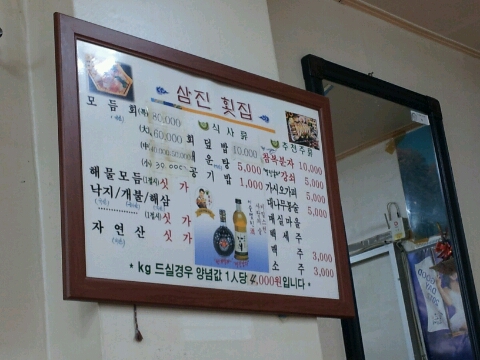 삼진 횟집
모듬회 (특) 80,000
(大) 60,000
(小) 30,000
해물모듬 (1접시) 싯가
낙지/개불/해삼
(1접시) 싯가
자연산 싯가
식사류
회덮밥 10,000
매운탕 5,000
공기밥 1,000
주전주류
참복분자 10,000
강쇠 5,000
가시오가피 5,000
대나무통술 5,000
매실마을
백세주
맥주 3,000
소주 3,000
* kg 드실경우 양념값 1人당 4,000원입니다 *